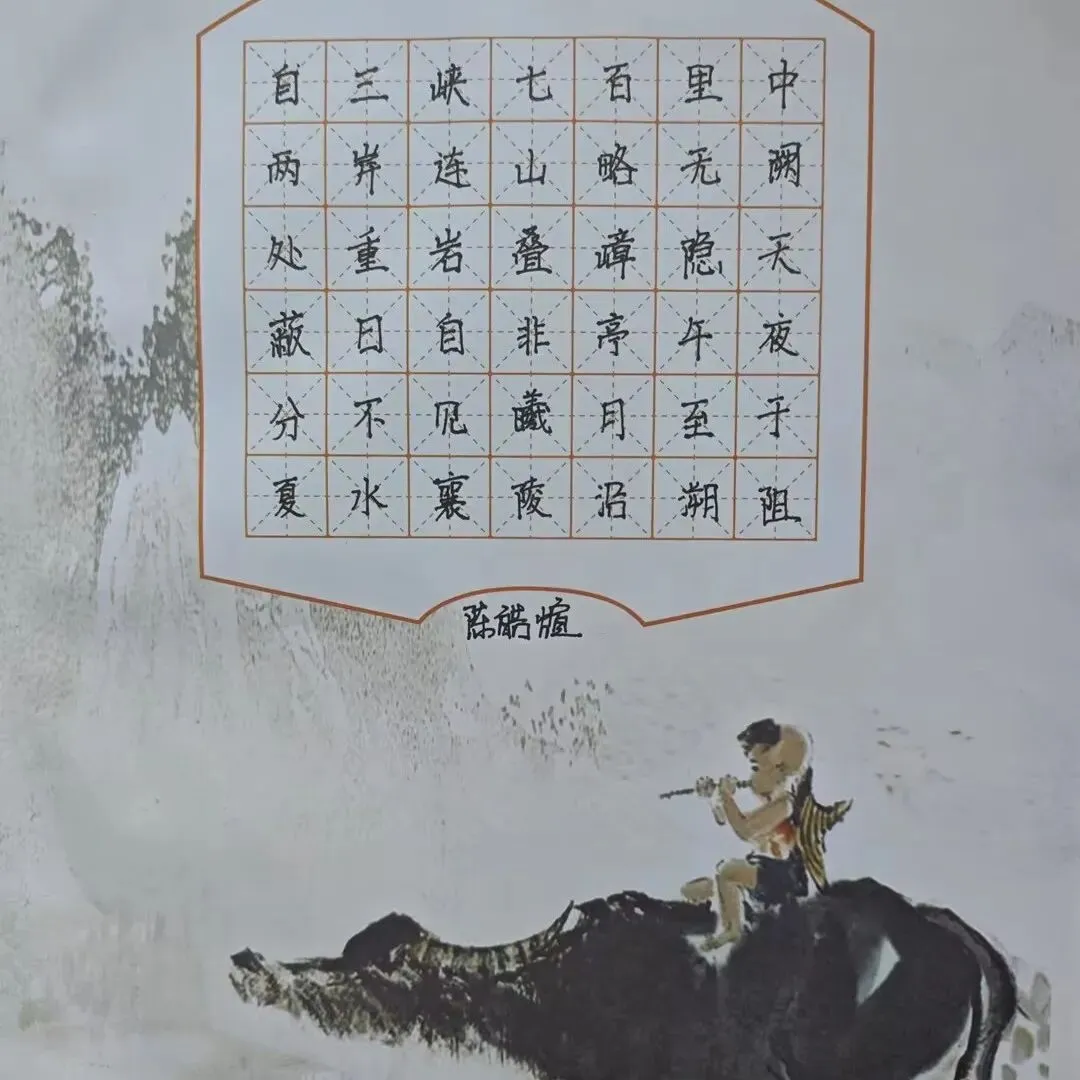 自三峡七百里中
两岸连山略无阙
处重岩叠嶂隐天
蔽日自非亭午夜
分不见曦月至于
夏水襄陵沿溯阻
陈皓煊